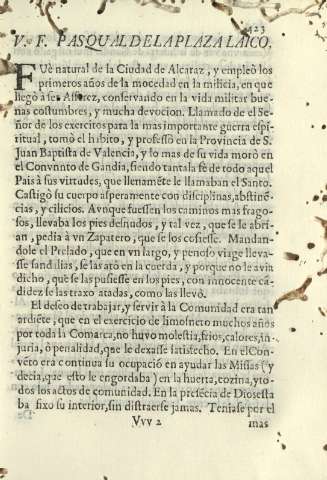 523
V. F. PASQUAL DE LA PLAZA LAICO.
FUè natural de la Ciudad de Alcaraz, y empleò los
primeros años de la mocedad en la milicia, en que
llegò a ser Alferez, conservando en la vida militar bue-
nas costumbres, y mucha devocion. Llamado de el Se-
ñor de los exercitos para la mas importante guerra espi-
ritual, tomò el habito, y professò en la Provincia de S.
Juan Baptista de Valencia, y lo mas de su vida morò en
el Convnnto de Gandia, siendo tanta la fè de todo aquel
Pais à sus virtudes, que llenamẽte le llamaban el Santo.
Castigò su cuerpo asperamente con disciplinas, abstinẽ-
cias, y cilicios. Avnque fuessen los caminos mas frago-
sos, llevaba los pies desnudos, y tal vez, que se le abri-
an, pedia à vn Zapatero, que se los cosiesse. Mandan-
dole el Prelado, que en vn largo, y penoso viage lleva-
sse sandalias, se las atò en la cuerda, y porque no le avia
dicho, que se las pusiesse en los pies, con innocente cã-
didez se las traxo atadas, como las llevò.
El deseo de trabajar, y servir à la Comunidad era tan
ardiẽte, que en el exercicio de limosnero muchos años
por toda la Comarca, no huvo molestia, frios, calores, in-
juria, ò penalidad, que le dexasse satisfecho. En el Con-
vẽto era continua su ocupaciõ en ayudar las Missas (y
decia, que esto le engordaba) en la huerta, cozina, y to-
dos los actos de comunidad. En la presẽcia de Dios esta
ba fixo su interior, sin distraerse jamas. Teniase por el
Vvv 2
mas